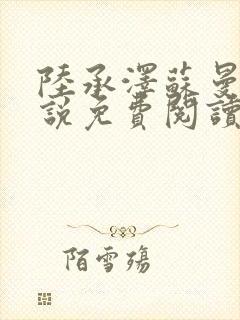 陸承澤蘇曼
說免費閱讀
陌雪殤